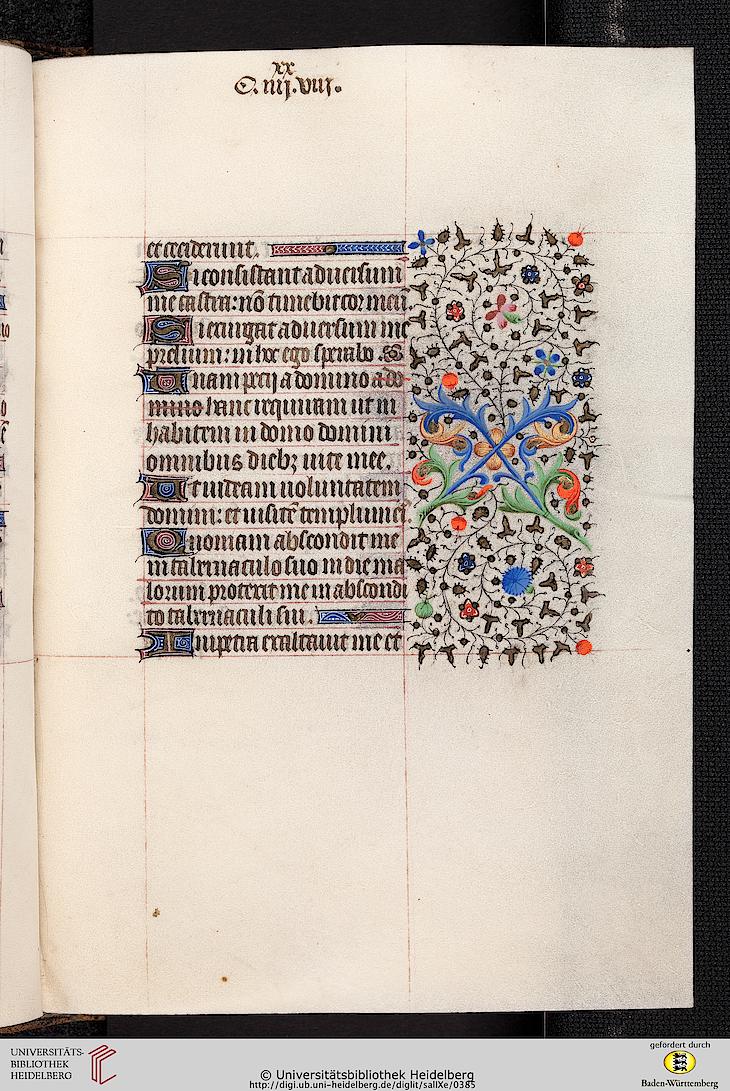 xx
C. iiij. viij.
et ceciderunt.
Si consistant aduersum
me castra: nõ timebit cor meũ
Si exurgat aduersum me
prelium: in hoc ego sperabo.
Unam pecij a domino a do
mino hanc requiram ut in
habitem in domo domini
omnibus diebꝫ uite mee.
Et uideam uoluntatem
domini: et uisitẽ templum eꝰ
Quoniam abscondit me
in tabernaculo suo in die ma
lorum protexit me in abscondi
to tabernaculi sui.
In petra exaltauit me et
UNIVERSITÄTS-
BIBLIOTHEK
HEIDELBERG
© Universitätsbibliothek Heidelberg
http://digi.ub.uni-heidelberg.de/diglit/sallXe/0385
gefördert durch
Baden-Württemberg